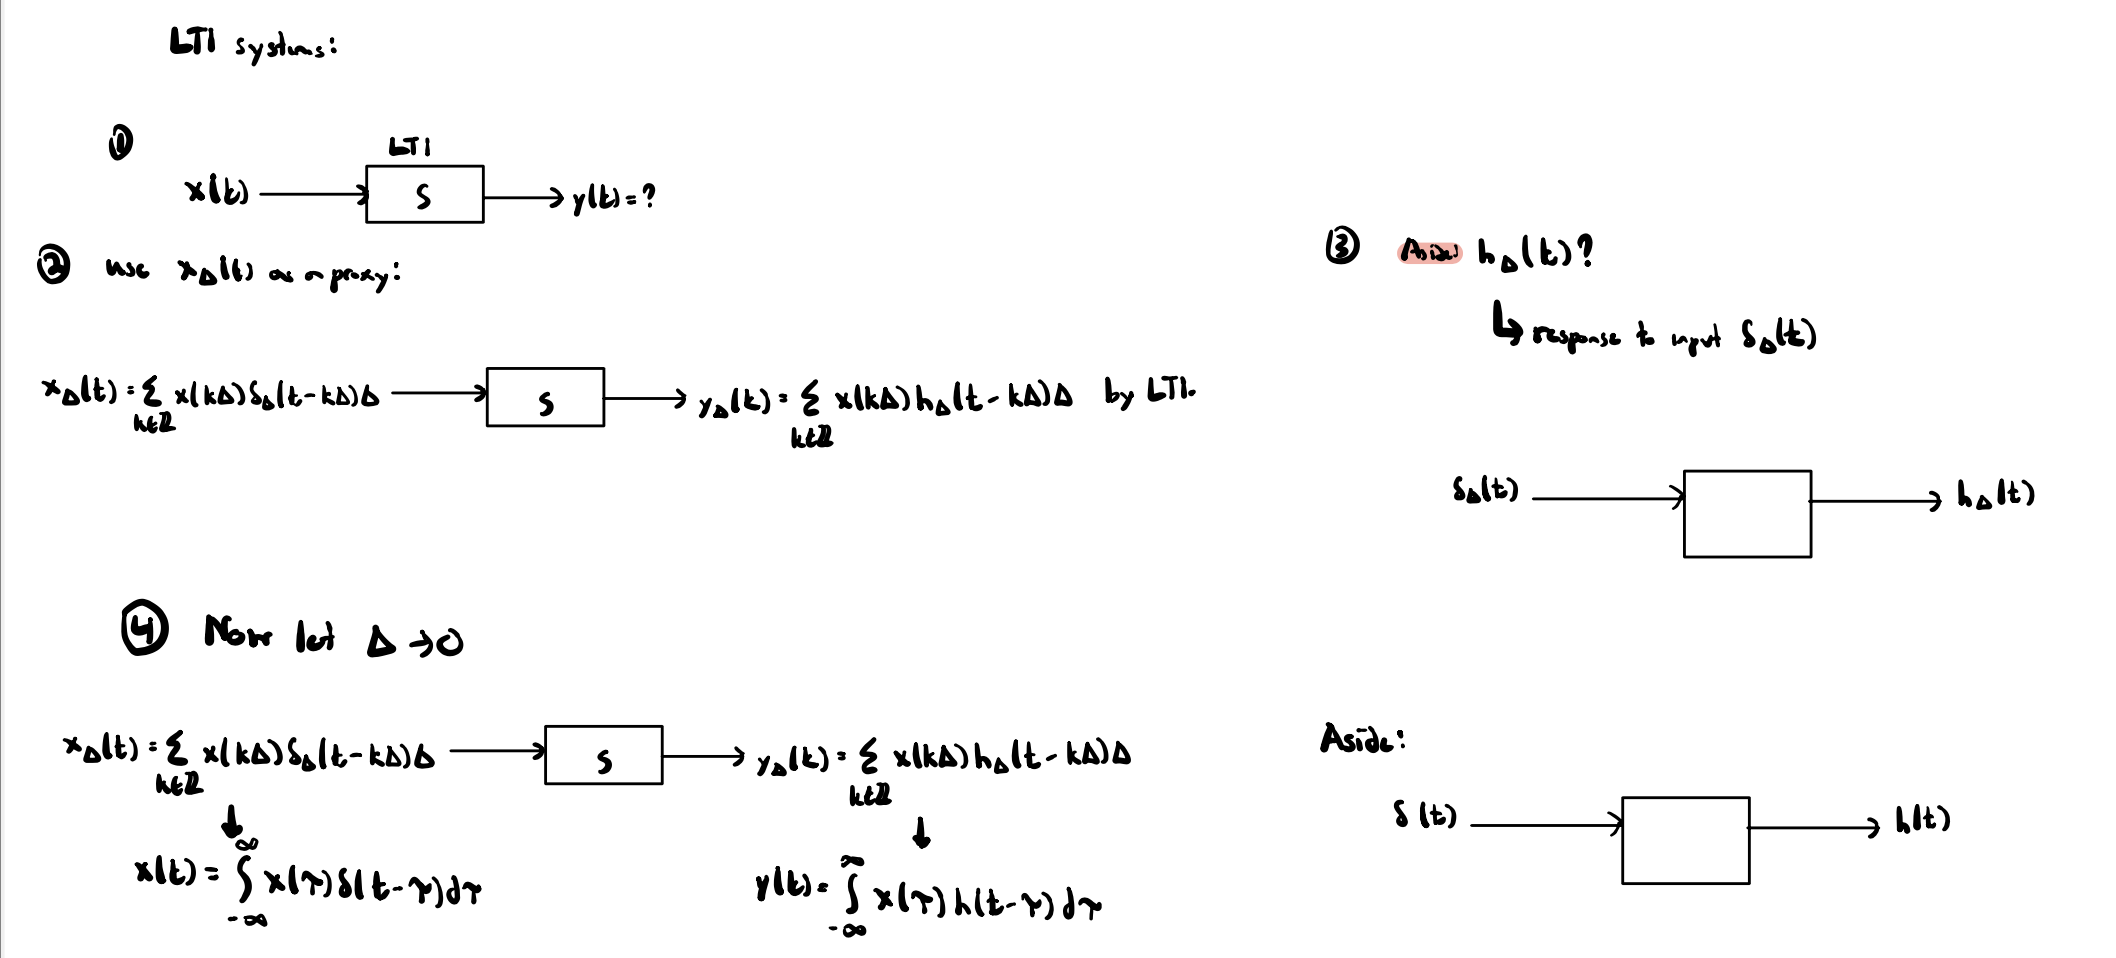 LTI systems:
①
LTI
x(t) → S → y(t) = ?
② use x_Δ(t) as a proxy:
x_Δ(t) = Σ_{k∈ℤ} x(kΔ) δ_Δ(t - kΔ) Δ → S → y_Δ(t) = Σ_{k∈ℤ} x(kΔ) h_Δ(t - kΔ) Δ by LTI.
③ Aside h_Δ(t)?
↳ response to input δ_Δ(t)
δ_Δ(t) → h_Δ(t)
④ Now let Δ → 0
x_Δ(t) = Σ_{k∈ℤ} x(kΔ) δ_Δ(t - kΔ) Δ → S → y_Δ(t) = Σ_{k∈ℤ} x(kΔ) h_Δ(t - kΔ) Δ
↓ ↓
x(t) = ∫_{-∞}^{∞} x(τ) δ(t - τ) dτ
y(t) = ∫_{-∞}^{∞} x(τ) h(t - τ) dτ
Aside:
δ(t) → h(t)